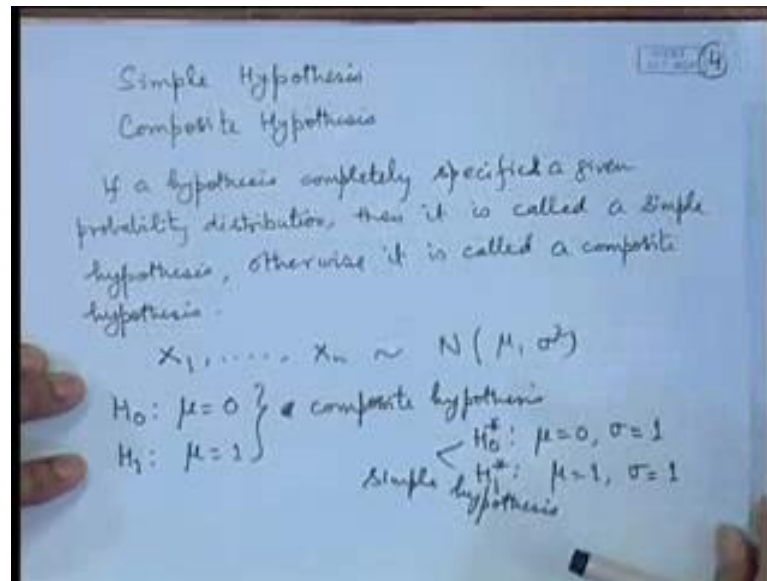 Simple Hypothesis
4
Composite Hypothesis
If a hypothesis completely specified a given
probability distribution, then it is called a simple
hypothesis, otherwise it is called a composite
hypothesis.
X₁, ..... Xₙ ~ N(μ, σ²)
H₀: μ=0 } composite hypothesis
H₁: μ=1
H₀*: μ=0, σ=1
H₁*: μ=1, σ=1
Simple hypothesis